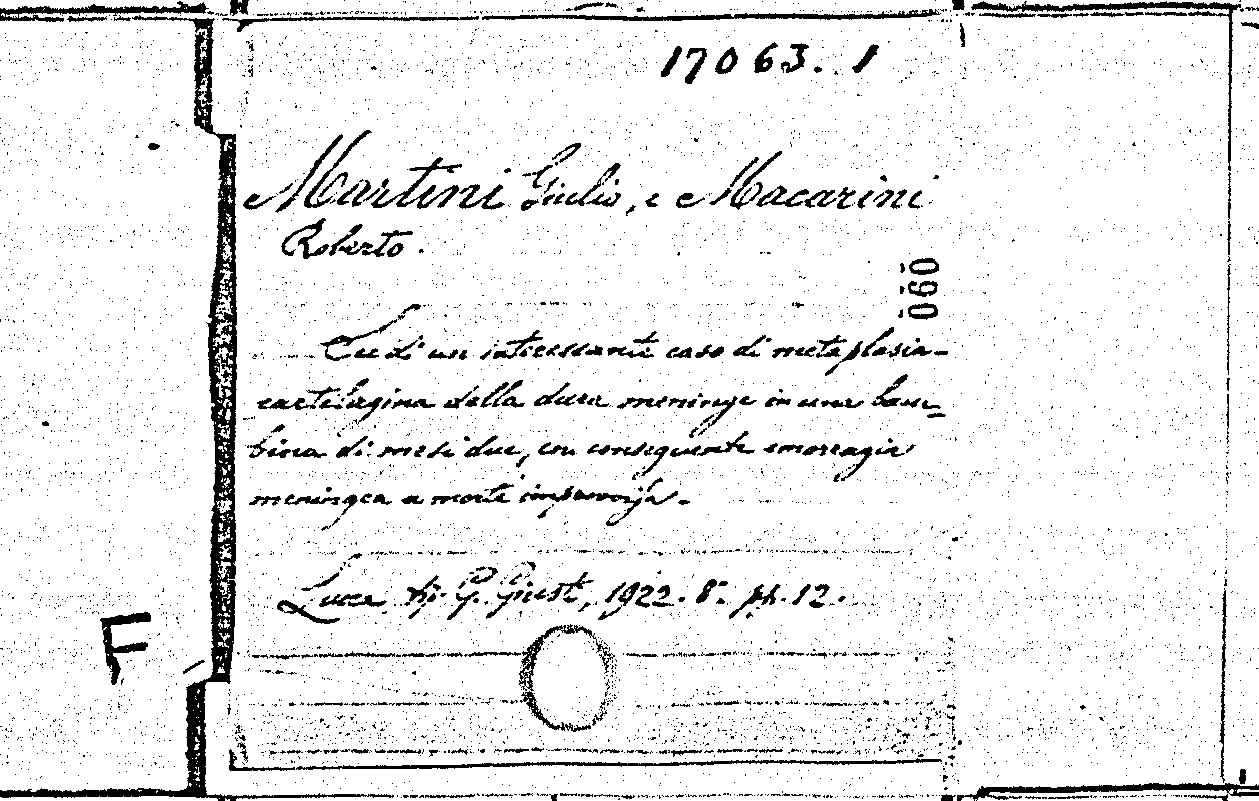 17063. 1
Martini Giulio, e Macarini
Roberto.
060
di un interessante caso di metaplasia
cartilagina della dura meninge in una bam-
bina di mesi due, con conseguente emorragia
meningea a morte improvvisa.
Lucca tip. G. Giusti, 1922. 8.° pp. 12.
F